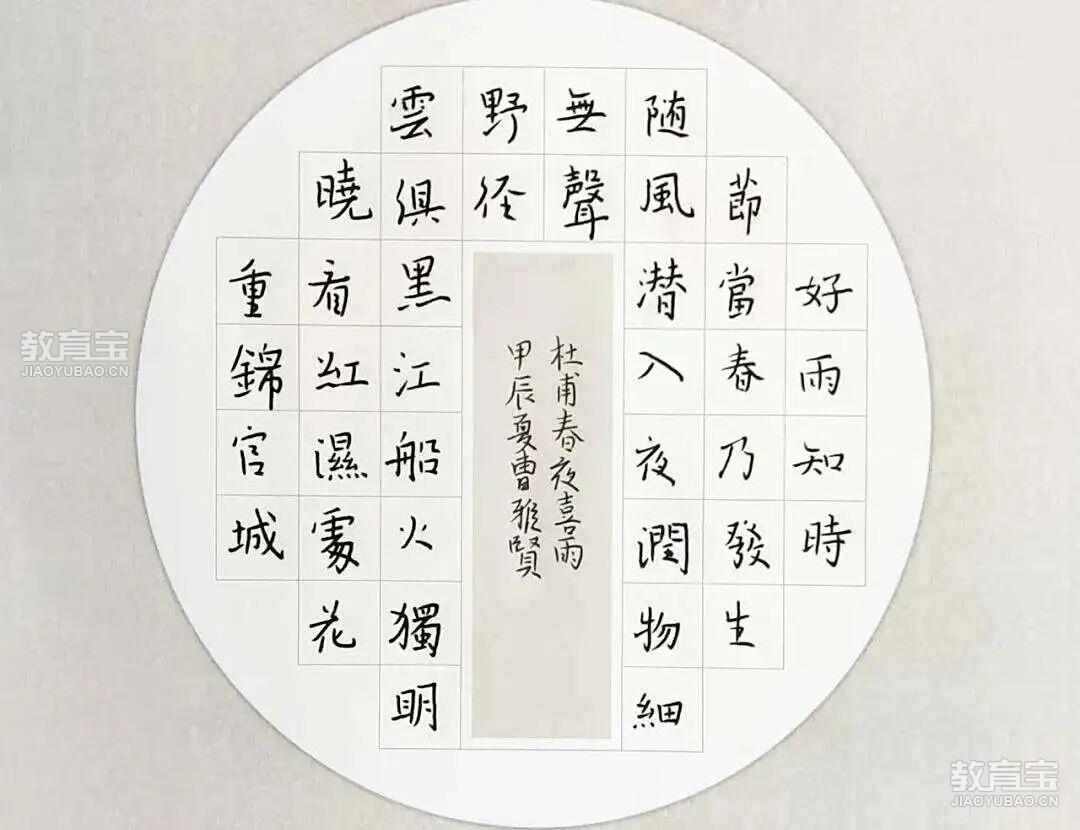 好雨知時
節當春乃發生
随風潜入夜潤物細
無聲
野径
雲俱黑江船火獨明
曉看紅濕處花
重錦官城
杜甫春夜喜雨
甲辰夏曹雅賢
教育宝
JIAOYUBAO.CN
教育宝
JIAOYUBAO.CN